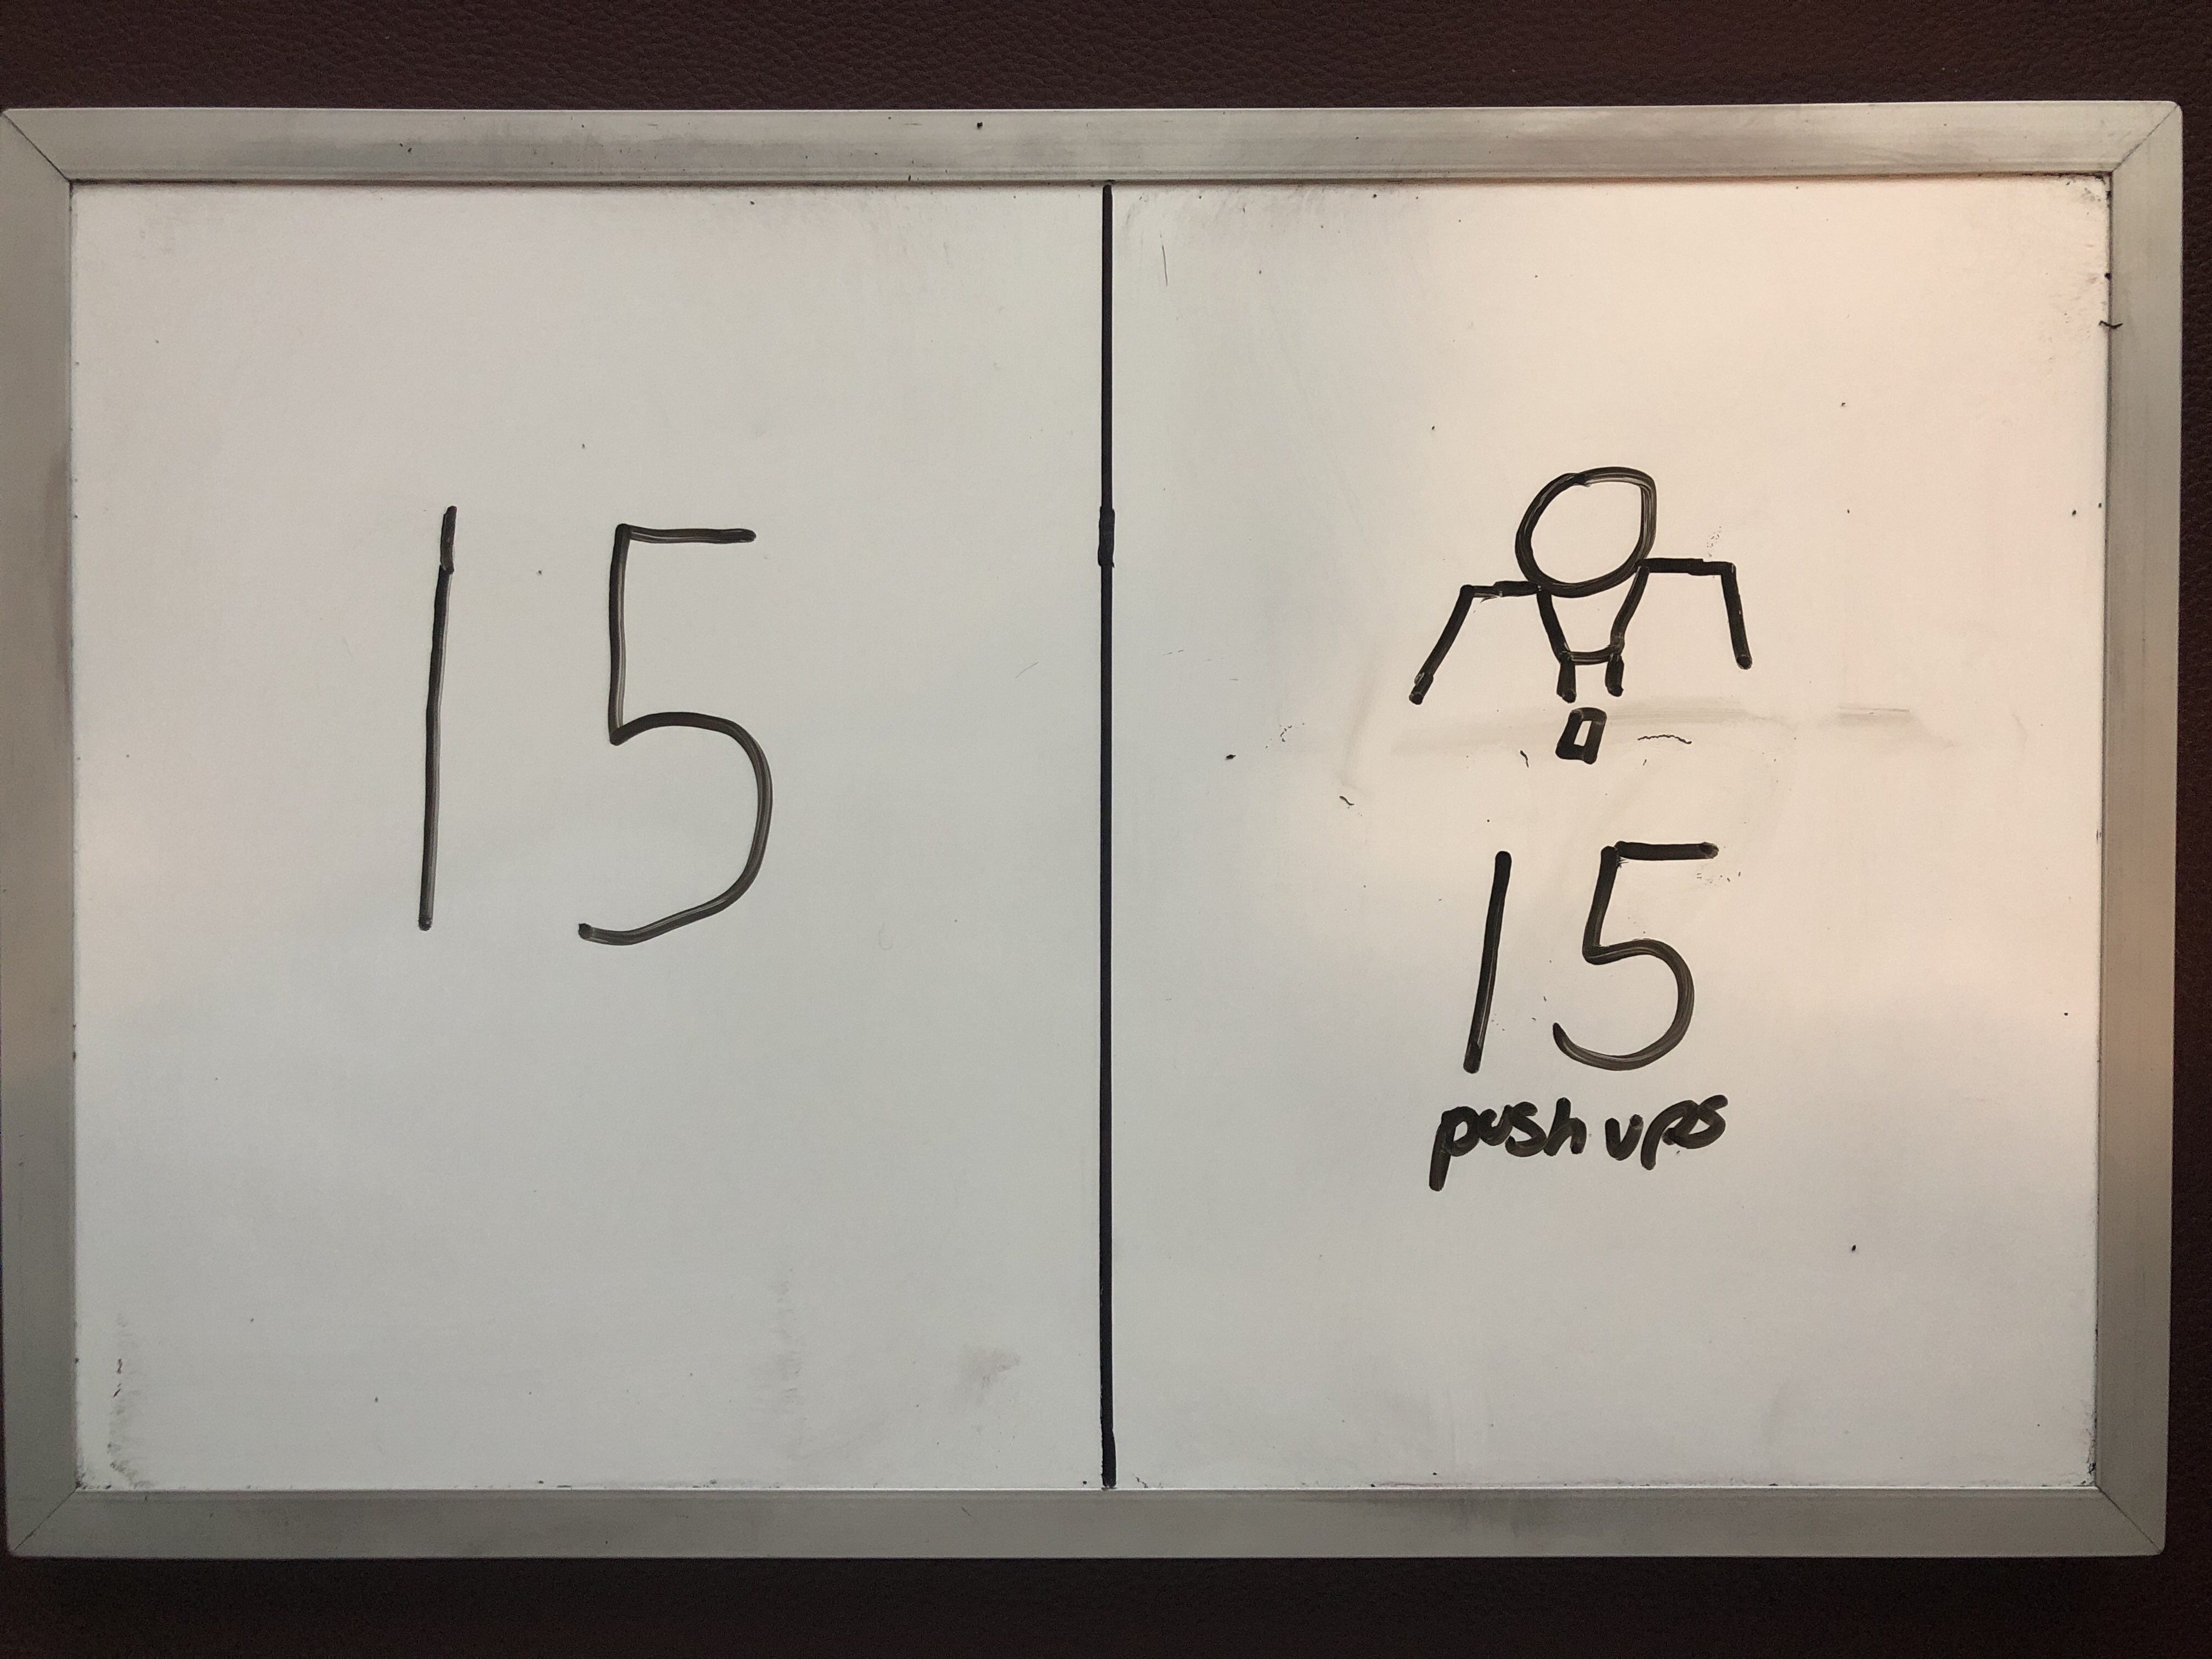 15
15
push ups